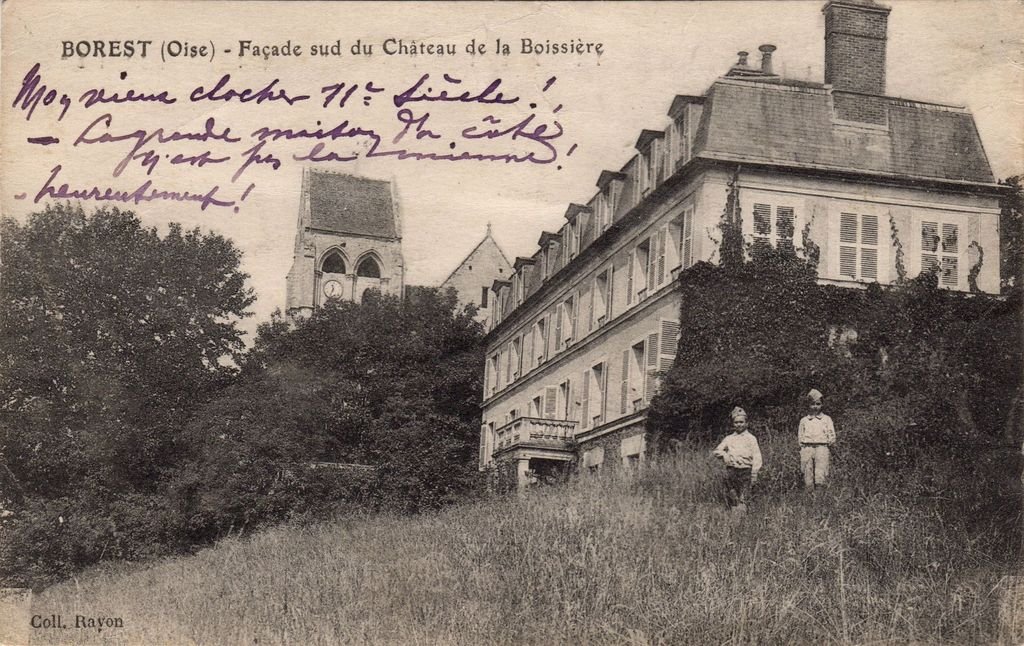 BOREST (Oise) - Façade sud du Château de la Boissière
Mon vieux clocher 11e Siècle !
- La grande maison d'à côté
n'est pas la mienne !
- heureusement !
Coll. Rayon